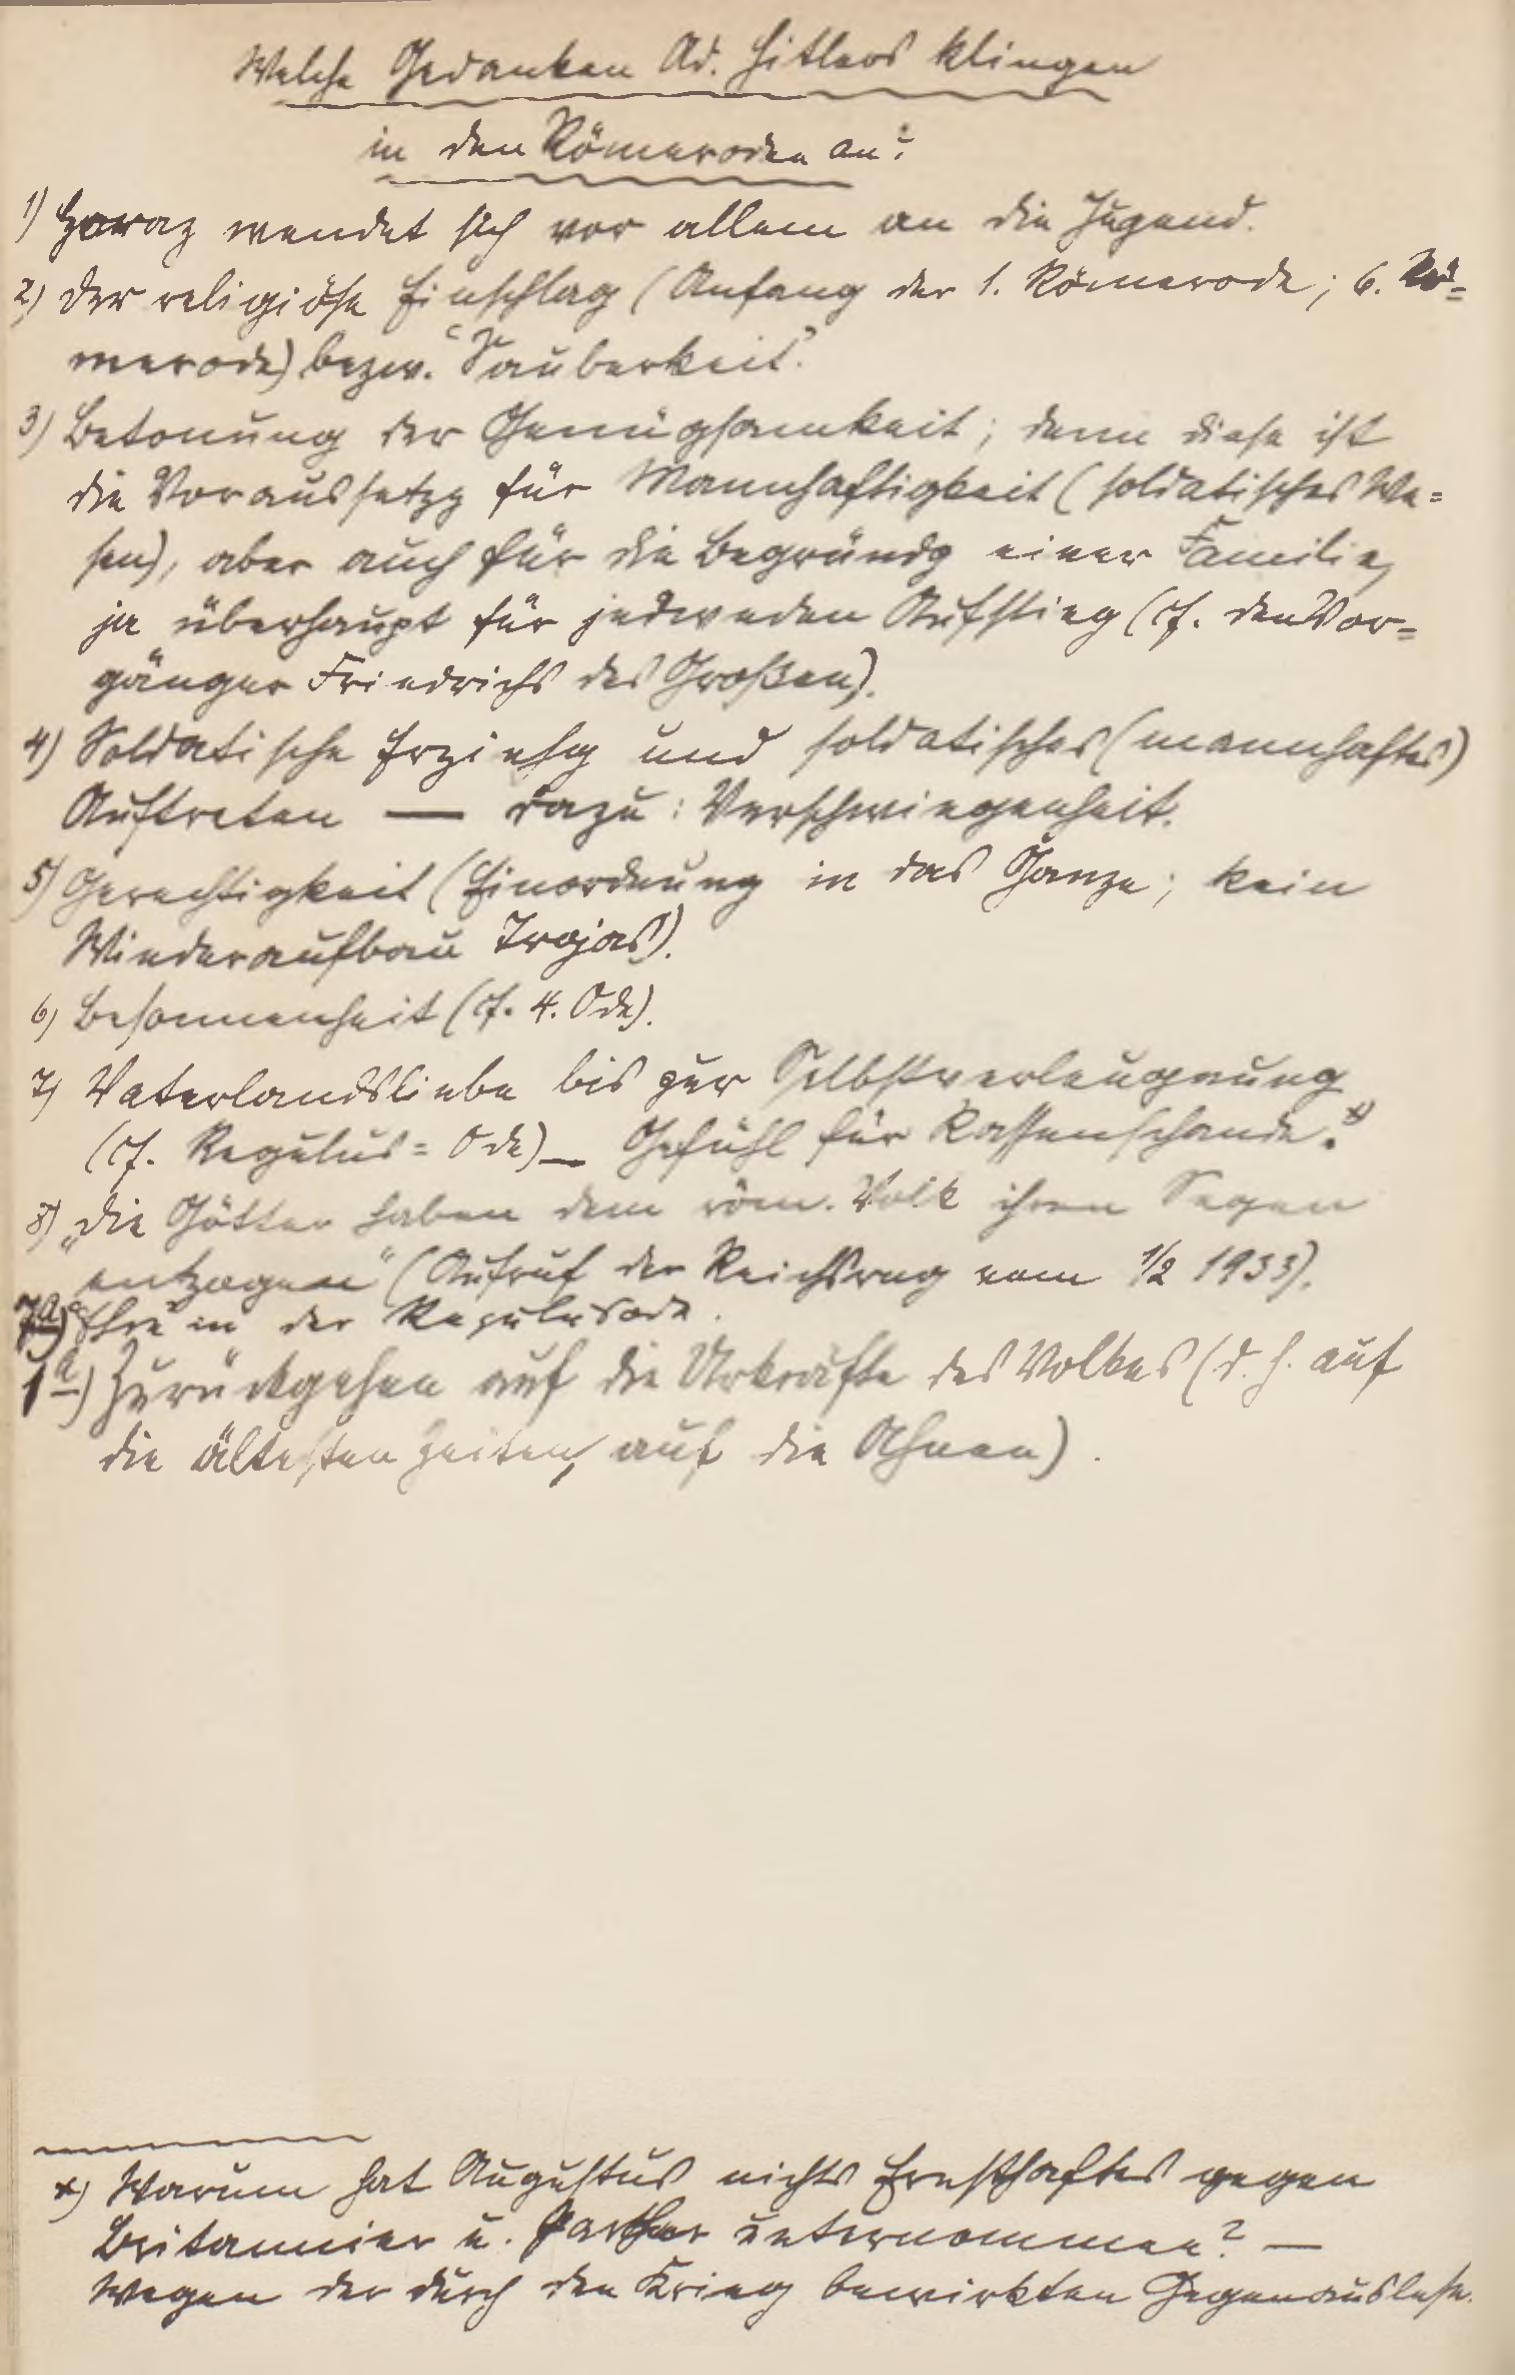 Welche Gedanken Ad. Hitlers klingen
in den Römeroden an?
1) Horaz wendet sich vor allem an die Jugend.
2) Der religiöse Einschlag (Anfang der 1. Römerode; 6. Rö=
merode) bezw. "Sauberkeit".
3) Betonung der Genügsamkeit; denn diese ist
die Voraussetzg für Mannhaftigkeit (soldatisches We=
sen), aber auch für die Begründg einer Familie,
ja überhaupt für jedweden Aufstieg (cf. den Vor=
gänger Friedrichs des Großen).
4) Soldatische Erziehg und soldatisches (mannhaftes)
Auftreten — dazu: Verschwiegenheit.
5) Gerechtigkeit (Einordnung in das Ganze; kein
Wiederaufbau Trojas).
6) Besonnenheit (cf. 4. Ode).
7) Vaterlandsliebe bis zur Selbstverleugnung
(cf. Regulus=Ode) — Gefühl für Rassenschande. x)
8) „Die Götter haben dem röm. Volk ihren Segen
entzogen“ (Aufruf der Reichsreg vom 1/2 1933).
7a) "Ehre" in der Regulusode.
1a) Zurückgehen auf die Urkräfte des Volkes (d. h. auf
die ältesten Zeiten, auf die Ahnen).
x) Warum hat Augustus nichts Ernsthaftes gegen
Britannier u. Parther unternommen? —
Wegen der durch den Krieg bewirkten Gegenauslese.